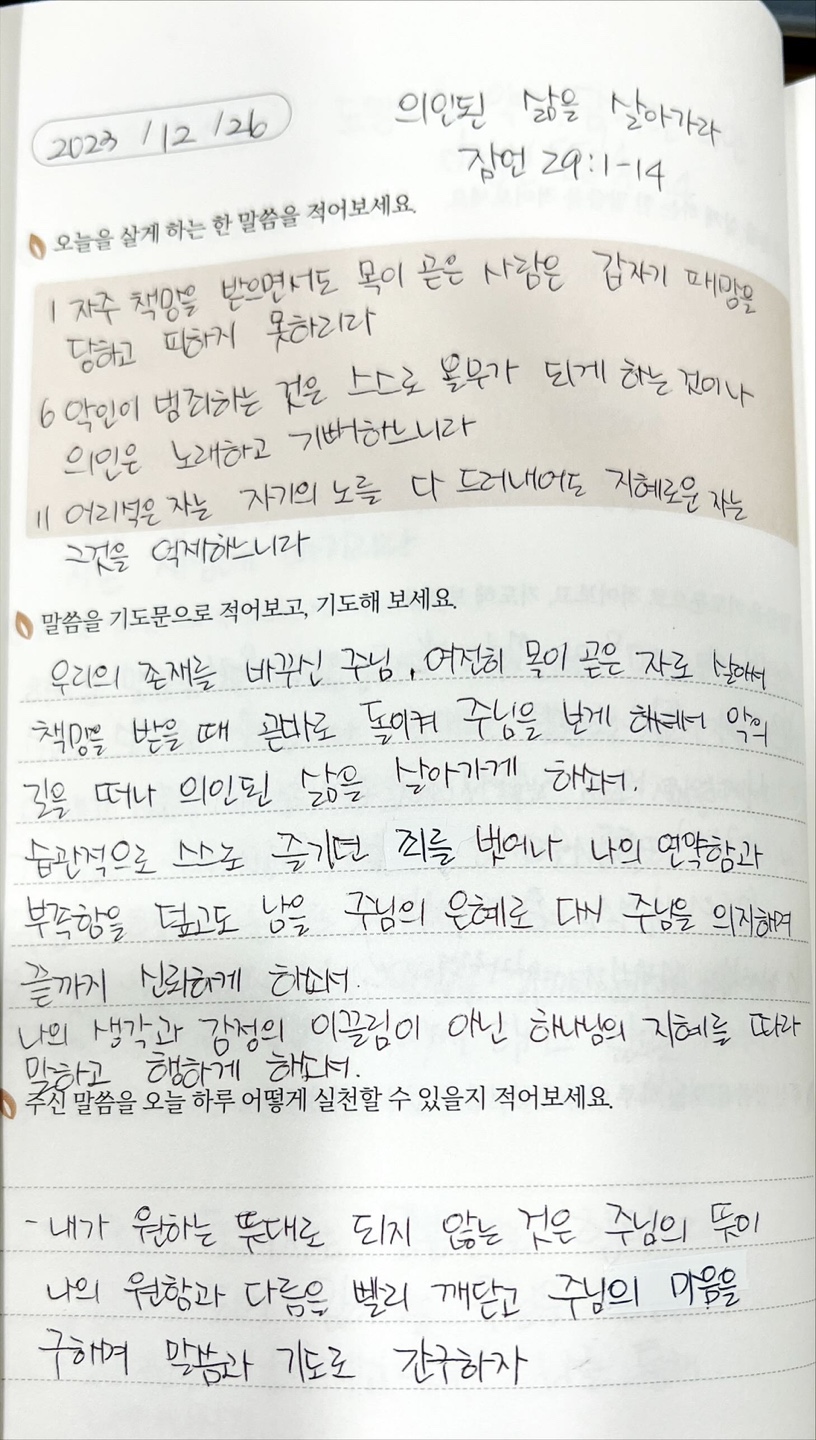 2023 / 12 / 26
의인된 삶을 살아가라
잠언 29:1-14
오늘을 살게 하는 한 말씀을 적어보세요.
1 자주 책망을 받으면서도 목이 곧은 사람은 갑자기 패망을
당하고 피하지 못하리라
6 악인이 범죄하는 것은 스스로 올무가 되게 하는 것이나
의인은 노래하고 기뻐하느니라
11 어리석은 자는 자기의 노를 다 드러내어도 지혜로운 자는
그것을 억제하느니라
말씀을 기도문으로 적어보고, 기도해 보세요.
우리의 존재를 바꾸신 주님, 여전히 목이 곧은 자로 살아서
책망을 받을 때 곧바로 돌이켜 주님을 보게 하셔서 악의
길을 떠나 의인된 삶을 살아가게 하소서.
습관적으로 스스로 즐기던 죄를 벗어나 나의 연약함과
부족함을 덮고도 남을 주님의 은혜로 다시 주님을 의지하며
끝까지 신뢰하게 하소서.
나의 생각과 감정의 이끌림이 아닌 하나님의 지혜를 따라
말하고 행하게 하소서.
주신 말씀을 오늘 하루 어떻게 실천할 수 있을지 적어보세요.
- 내가 원하는 뜻대로 되지 않는 것은 주님의 뜻이
나의 원함과 다름을 빨리 깨닫고 주님의 마음을
구하며 말씀과 기도로 간구하자